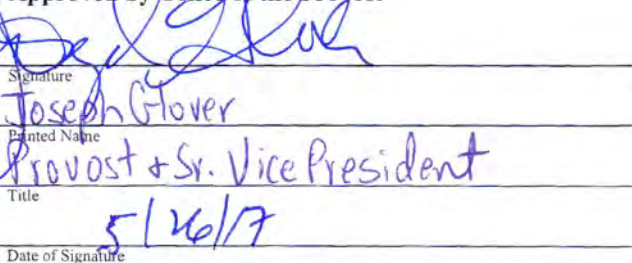 Signature
Joseph Glover
Printed Name
Provost & Sr. Vice President
Title
5/26/17
Date of Signature